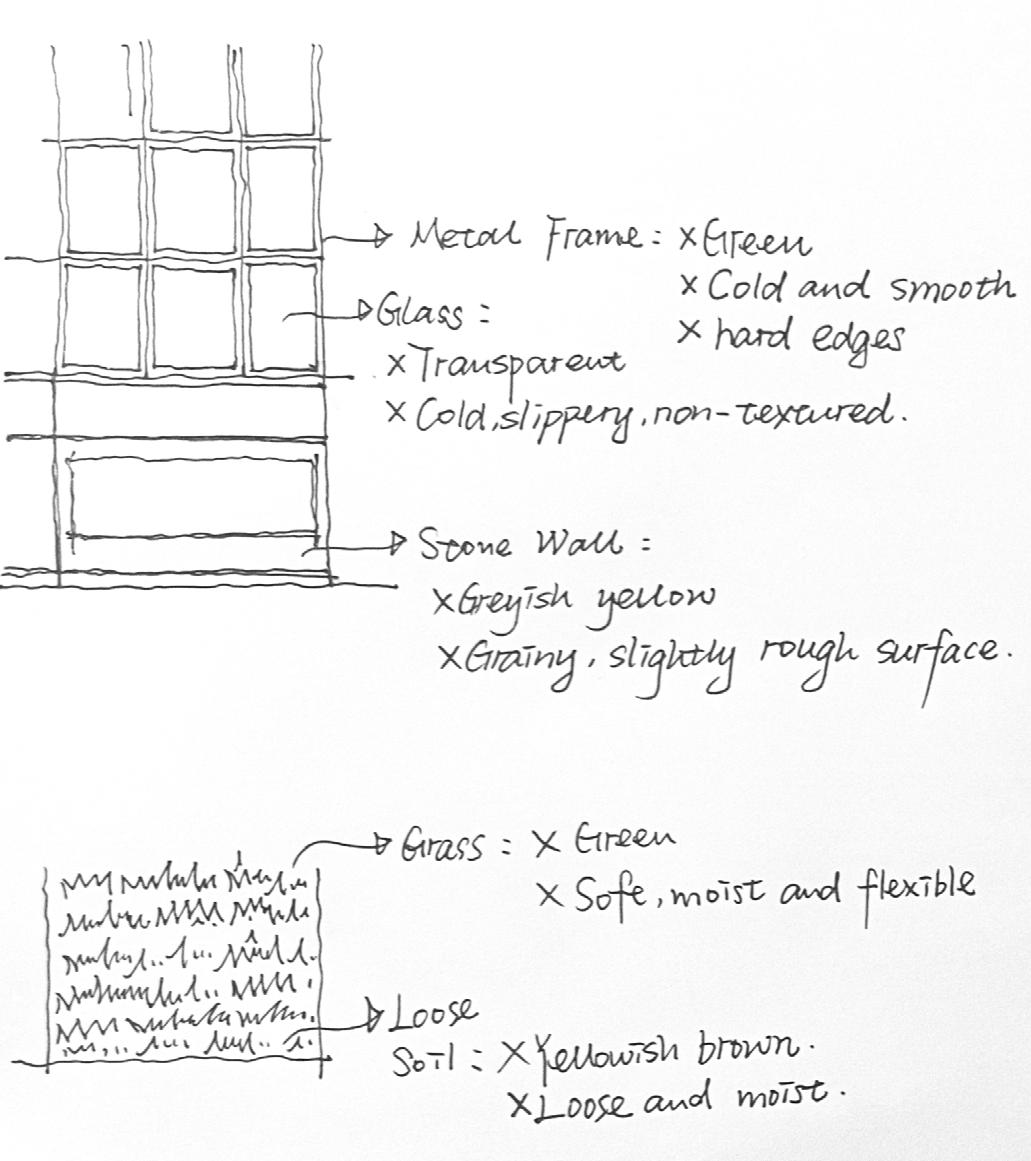 Metal Frame: x Green
x Cold and smooth
x hard edges
Glass:
x Transparent
x Cold, slippery, non-textured.
Stone Wall:
x Greyish yellow
x Grainy, slightly rough surface.
Grass: x Green
x Soft, moist and flexible
Loose
Soil: x Yellowish brown.
x Loose and moist.